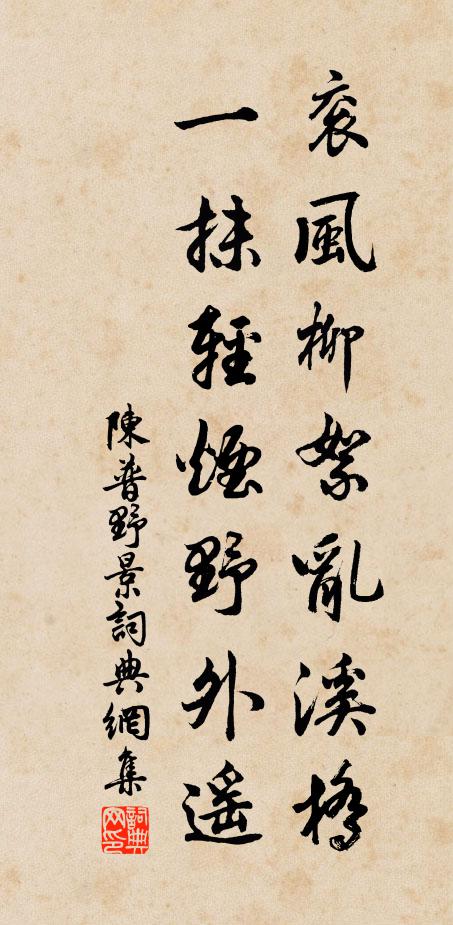 衮風柳絮亂溪橋
一抹輕煙野外遙
陳普野景詞典網集
詞典網印